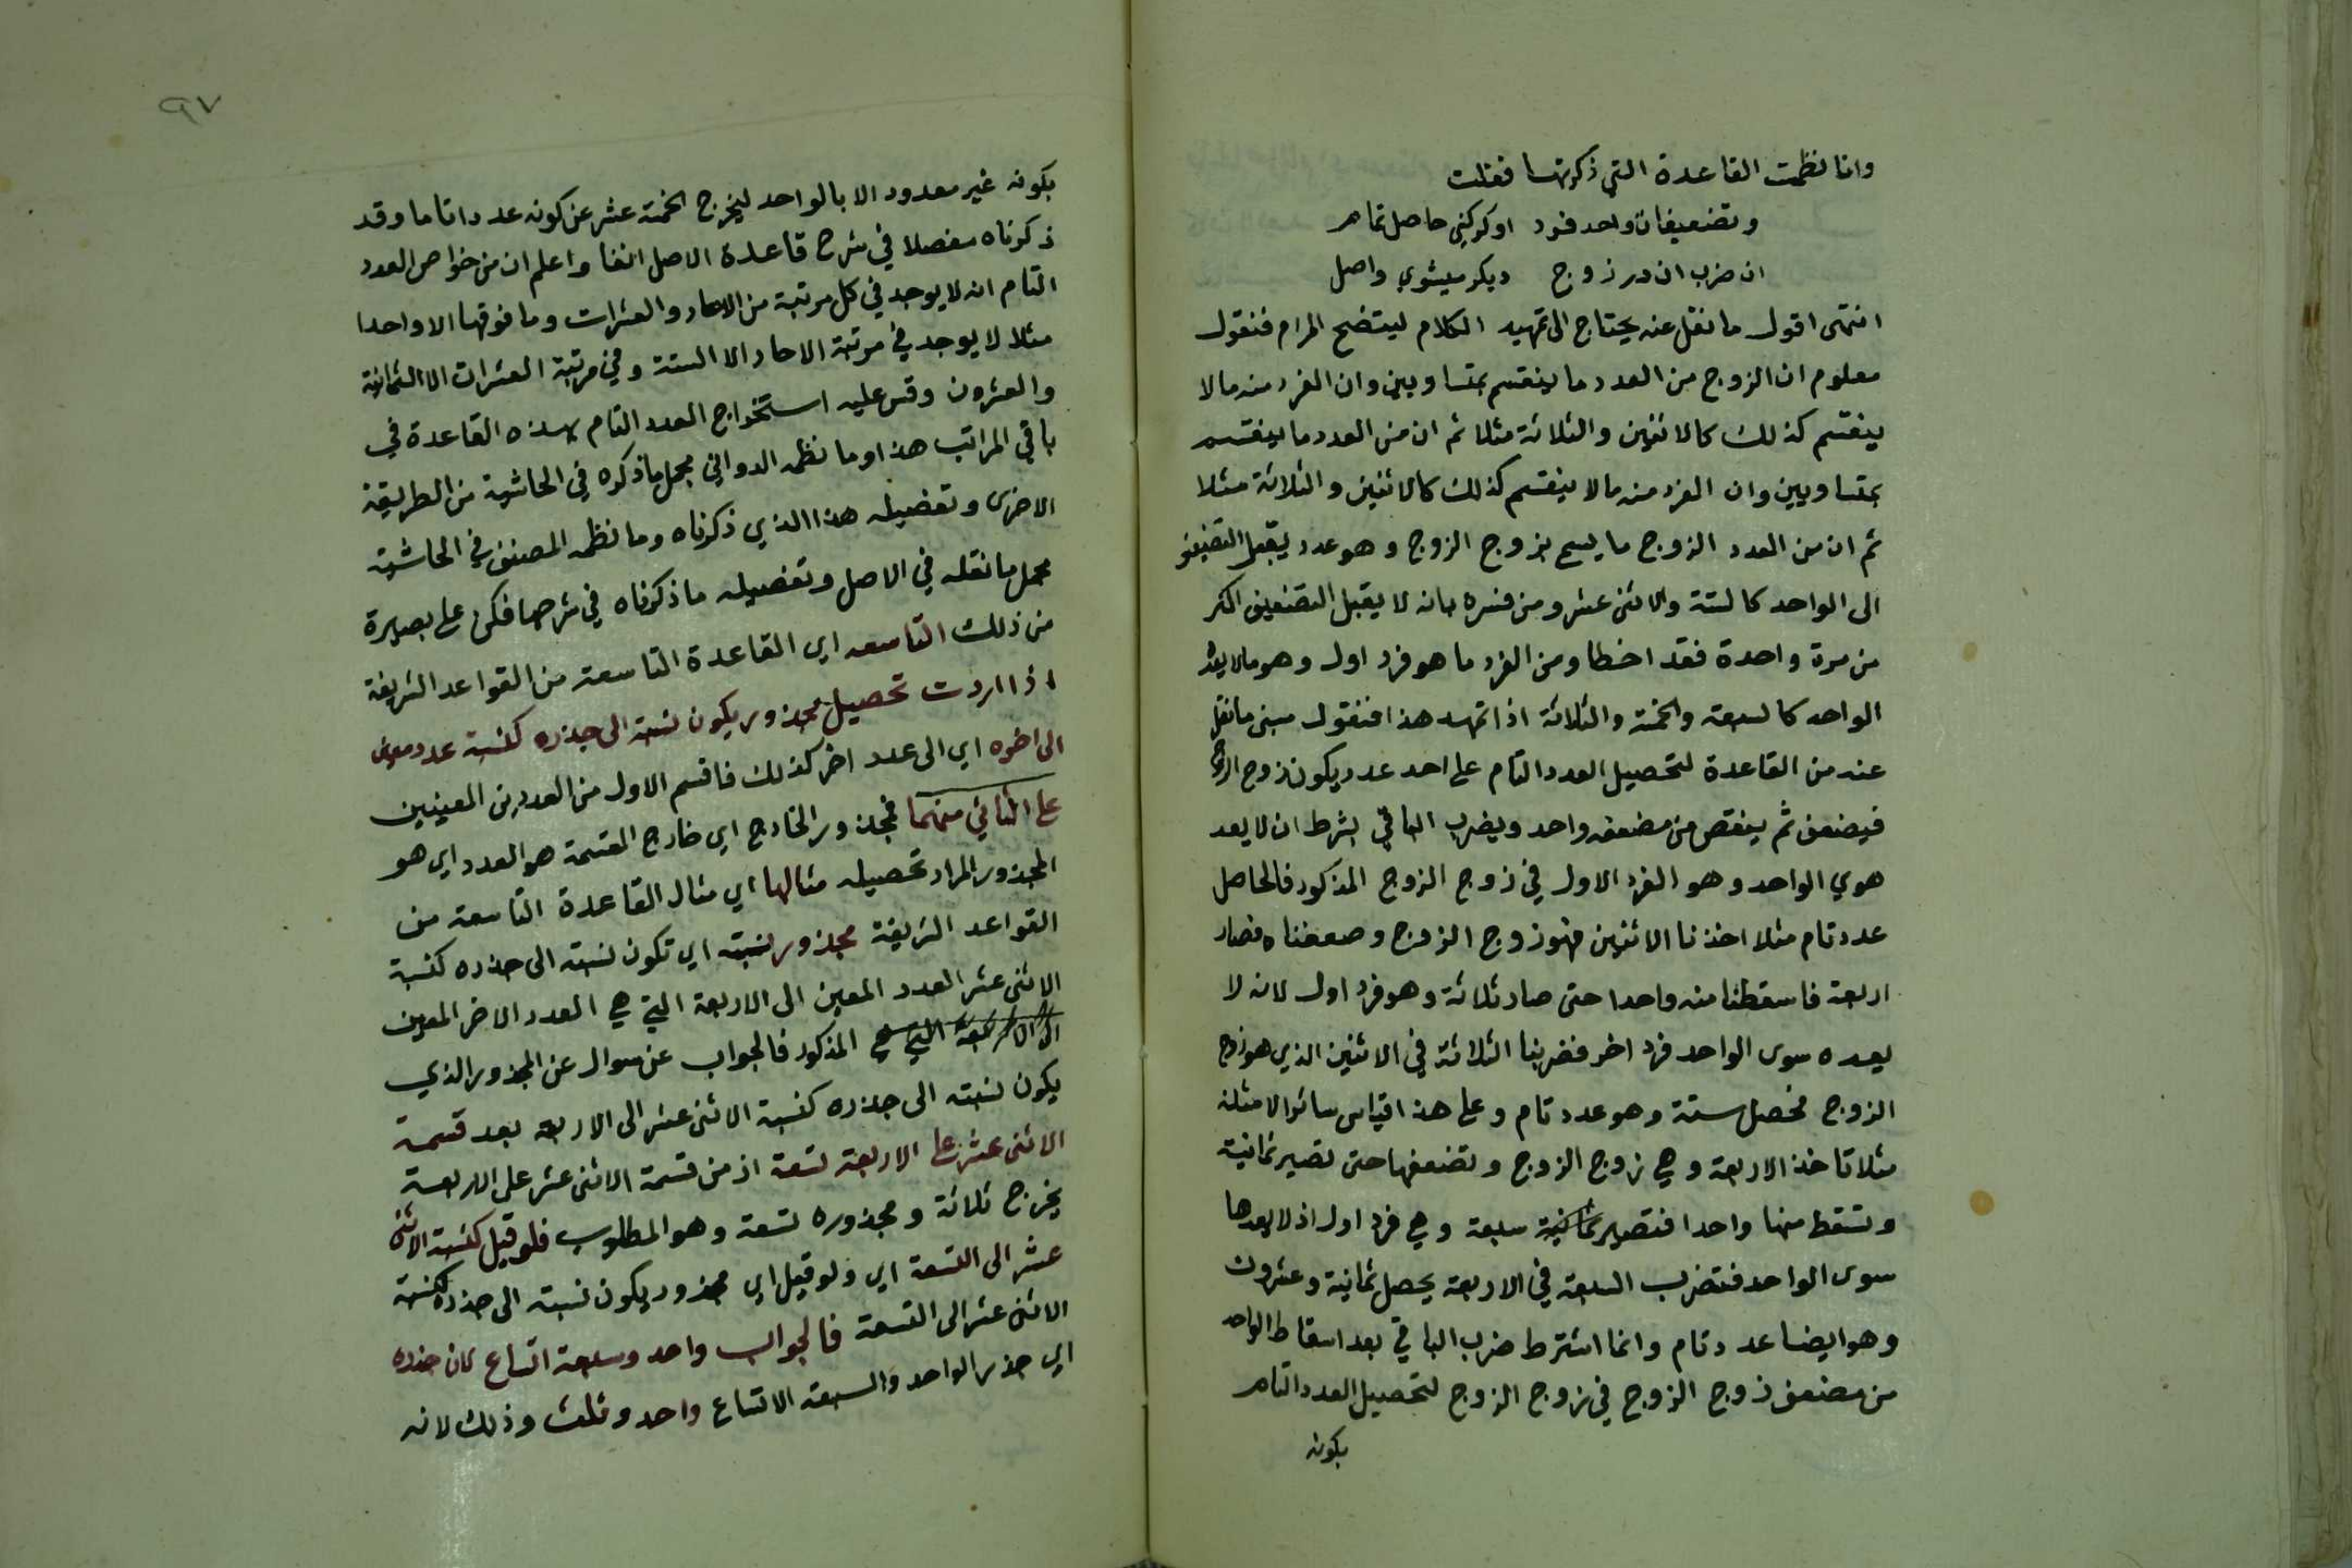 وانا نظمت القاعدة التي ذكرتها فقلت
وتضعيفات واحد فرد اوكركني حاصل تمام
ان ضرب ان در زوج ديكر ميشوي واصل
انتهى اقول ما نقل عنه يحتاج الى تمهيد الكلام ليتضح المرام فنقول
معلوم ان الزوج من العدد ما ينقسم بمتساويين وان الفرد منه ما لا
ينقسم كذلك كالاثنين والثلاثة مثلا ثم ان من العدد ما ينقسم
بمتساويين وان الفرد منه ما لا ينقسم كذلك كالاثنين والثلاثة مثلا
ثم ان من العدد الزوج ما يسمى بزوج الزوج وهو عدد يقبل التضيف
الى الواحد كالستة والاثنى عشر ومن فسره بانه لا يقبل التضعيف اكثر
من مرة واحدة فقد اخطا ومن الفرد ما هو فرد اول وهو مالا يعد
الواحد كالسبعة والخمسة والثلاثة اذا تمهد هذا فنقول مبنى ما نقل
عنه من القاعدة لتحصيل العدد التام على احد عدد يكون زوج الزوج
فيضعف ثم ينقص من مضعفه واحد ويضرب الباقي بشرط ان لا يعد
هوي الواحد وهو الفرد الاول في زوج الزوج المذكور فالحاصل
عدد تام مثلا اخذنا الاثنين فهو زوج الزوج وضعفناه فصار
اربعة فاسقطنا منه واحدا حتى صار ثلاثة وهو فرد اول لانه لا
يعده سوى الواحد فرد اخر فضربنا الثلاثة في الاثنين الذي هو زوج
الزوج فحصل ستة وهو عدد تام وعلى هذا اقياس سائر الامثلة
مثلا تاخذ الاربعة وهي زوج الزوج وتضعفها حتى تصير ثمانية
وتسقط منها واحدا فتصير ثمانية سبعة وهي فرد اول اذ لا يعدها
سوى الواحد فتضرب السبعة في الاربعة يحصل ثمانية وعشرون
وهو ايضا عدد تام وانما اشترط ضرب الباقي بعد اسقاط الواحد
من مضعف زوج الزوج في زوج الزوج لتحصيل العدد التام
بكونه
٩٧
بكونه غير معدود الا بالواحد ليخرج الخمسة عشر عن كونه عددا تاما وقد
ذكرناه مفصلا في شرح قاعدة الاصل انفا واعلم ان من خواص العدد
التام انه لا يوجد في كل مرتبة من الاحاد والعشرات وما فوقها الا واحدا
مثلا لا يوجد في مرتبة الاحاد الا الستة وفي مرتبة العشرات الا الثمانية
والعشرون وقس عليه استخراج العدد التام بهذه القاعدة في
باقي المراتب هذا وما نظمه الدواني مجمل ما ذكره في الحاشية من الطريقة
الاخرى وتفصيله هذا الذي ذكرناه وما نظمه المصنف في الحاشية
مجمل ما نقله في الاصل وتفصيله ما ذكرناه في شرحها فكن على بصيرة
من ذلك التاسعه اي القاعدة التاسعة من القواعد الشريفة
اذا اردت تحصيل مجذور يكون نسبته الى جذره كنسبة عدد معين
الى اخره اي الى عدد اخر كذلك فاقسم الاول من العددين المعينين
على الثاني منهما فمجذور الخارج اي خارج القسمة هو العدد اي هو
المجذور المراد تحصيله مثالها اي مثال القاعدة التاسعة من
القواعد الشريفة مجذور نسبته اي تكون نسبته الى جذره كنسبة
الاثنى عشر العدد المعين الى الاربعة التي هي العدد الاخر المعين
الى الاربعة التي هي المذكور فالجواب عن سوال عن المجذور الذي
يكون نسبته الى جذره كنسبة الاثنى عشر الى الاربعة بعد قسمة
الاثنى عشر على الاربعة تسعة اذ من قسمة الاثنى عشر على الاربعة
يخرج ثلاثة ومجذوره تسعة وهو المطلوب فلو قيل كنسبة الاثنى
عشر الى التسعة اي ولو قيل اي مجذور يكون نسبته الى جذره كنسبة
الاثنى عشر الى التسعة فالجواب واحد وسبعة اتساع لان جذره
اي جذر الواحد والسبعة الاتساع واحد وثلث وذلك لانه